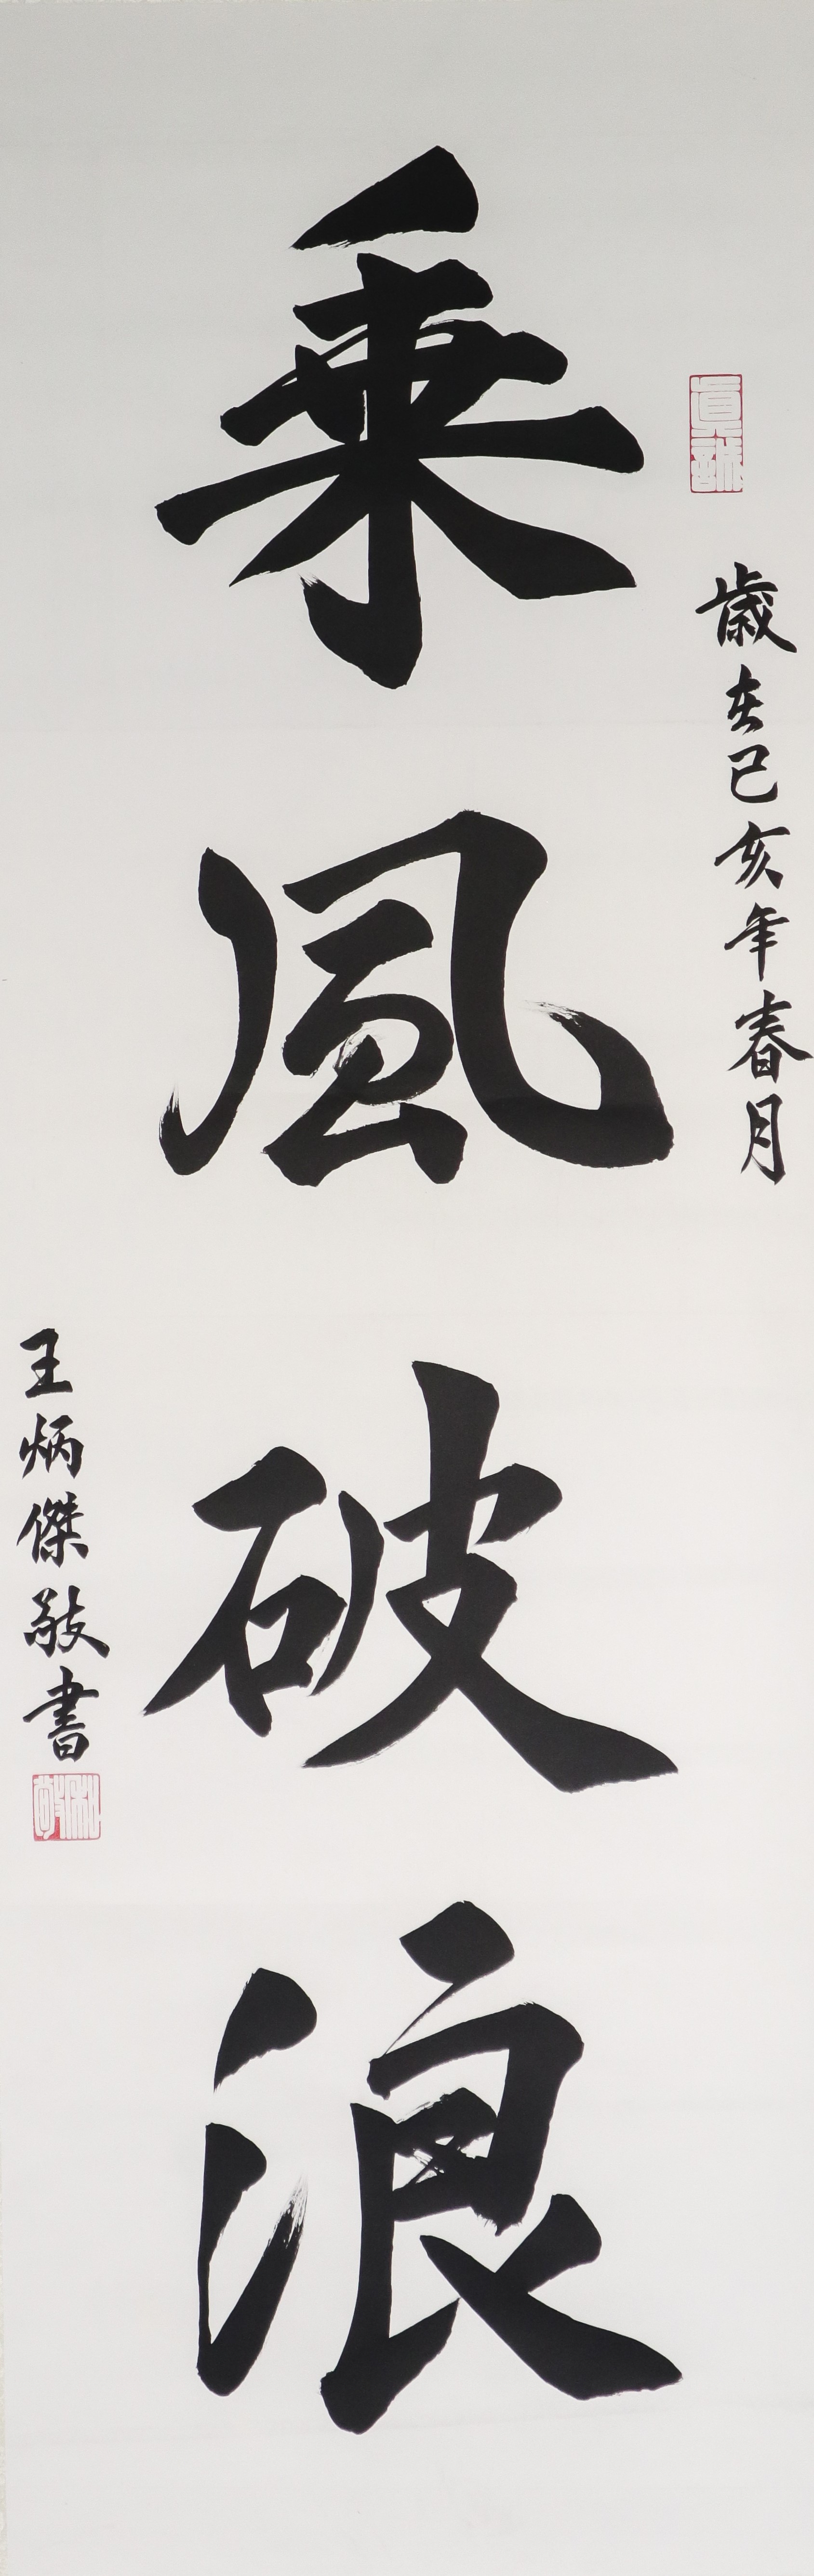 真誠
歲在己亥年春月
乗風破浪
王炳傑敬書